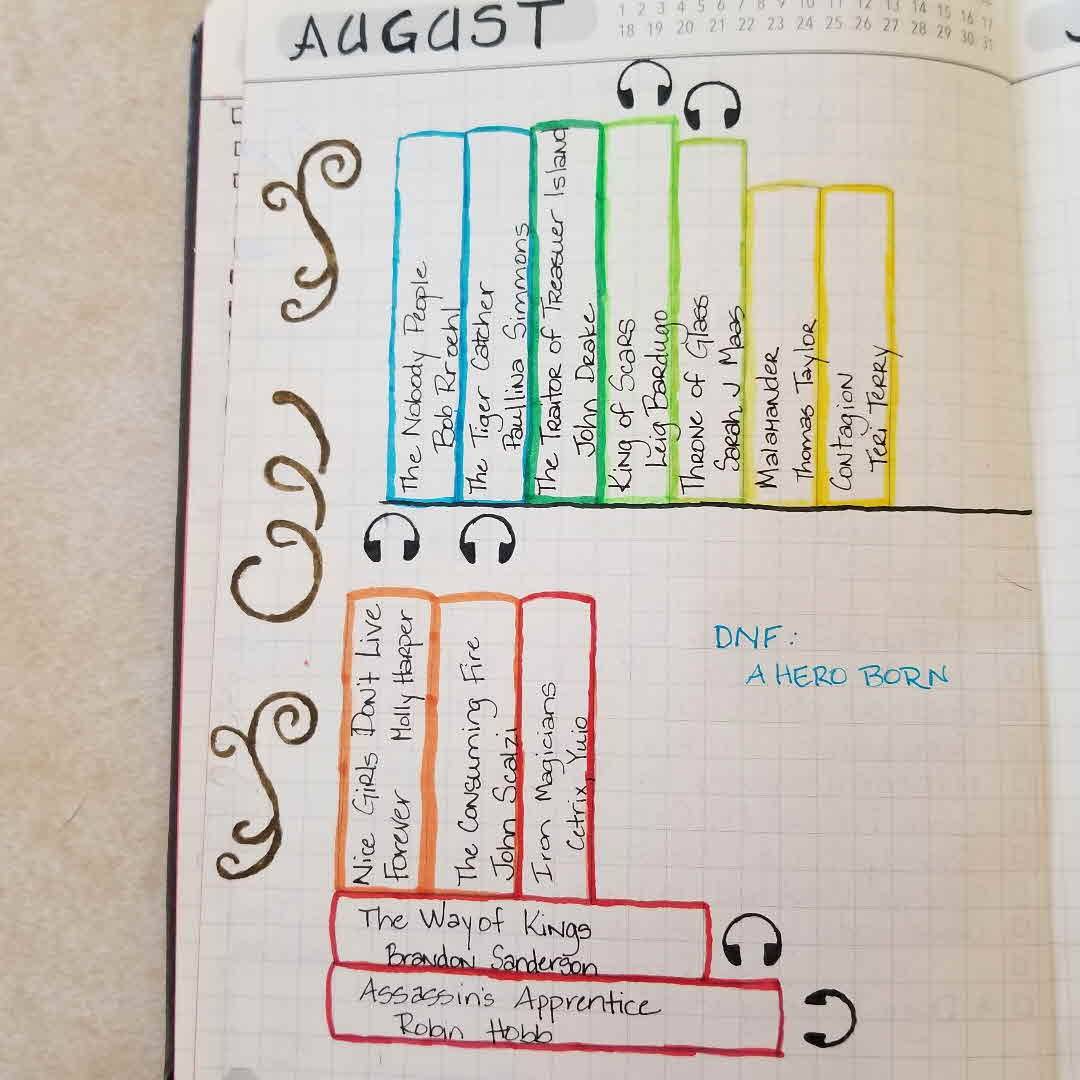 AUGUST
1 2 3 4 5 6 7 8 9 10 11 12 13 14 15 16 17
18 19 20 21 22 23 24 25 26 27 28 29 30 31
The Nobody People
Bob Proehl
The Tiger Catcher
Paullina Simmons
The Traitor of Treasuer Island
John Drake
King of Scars
Leig Bardugo
Throne of Glass
Sarah J Maas
Malamander
Thomas Taylor
Contagion
Teri Terry
DNF:
A HERO BORN
Nice Girls Don't Live
Forever Molly Harper
The Consuming Fire
John Scalzi
Iron Magicians
Cetrix, Yuio
The Way of Kings
Brandon Sanderson
Assassin's Apprentice
Robin Hobb